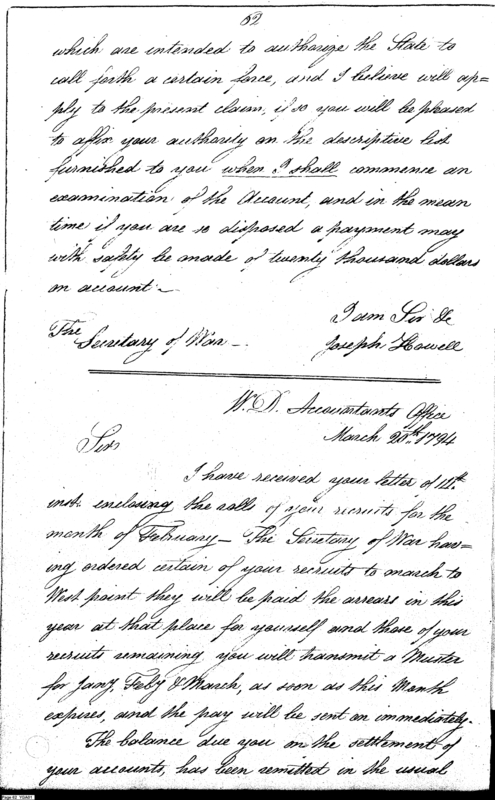 62
which are intended to authorize the State to
call forth a certain force, and I believe will ap=
ply to the present claim, if so you will be pleased
to affix your authority on the descriptive list
furnished to you when I shall commence an
examination of the Account, and in the mean
time if you are so disposed a payment may
with safety be made of twenty thousand dollars
on account.—
I am Sir &c
The
Secretary of War —
Joseph Howell
W. D. Accountants Office
March 20th. 1794
Sir
I have received your letter of 11th.
inst. enclosing the rolls of your recruits for the
month of February — The Secretary of War hav=
ing ordered certain of your recruits to march to
West point they will be paid the arrears in this
year at that place for yourself and those of your
recruits remaining you will transmit a Muster
for Jany, Feby & March, as soon as this Month
expires, and the pay will be sent on immediately.
The balance due you on the settlement of
your accounts, has been remitted in the usual